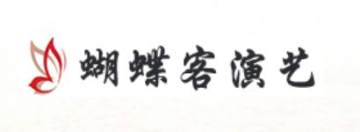 蝴蝶客演艺